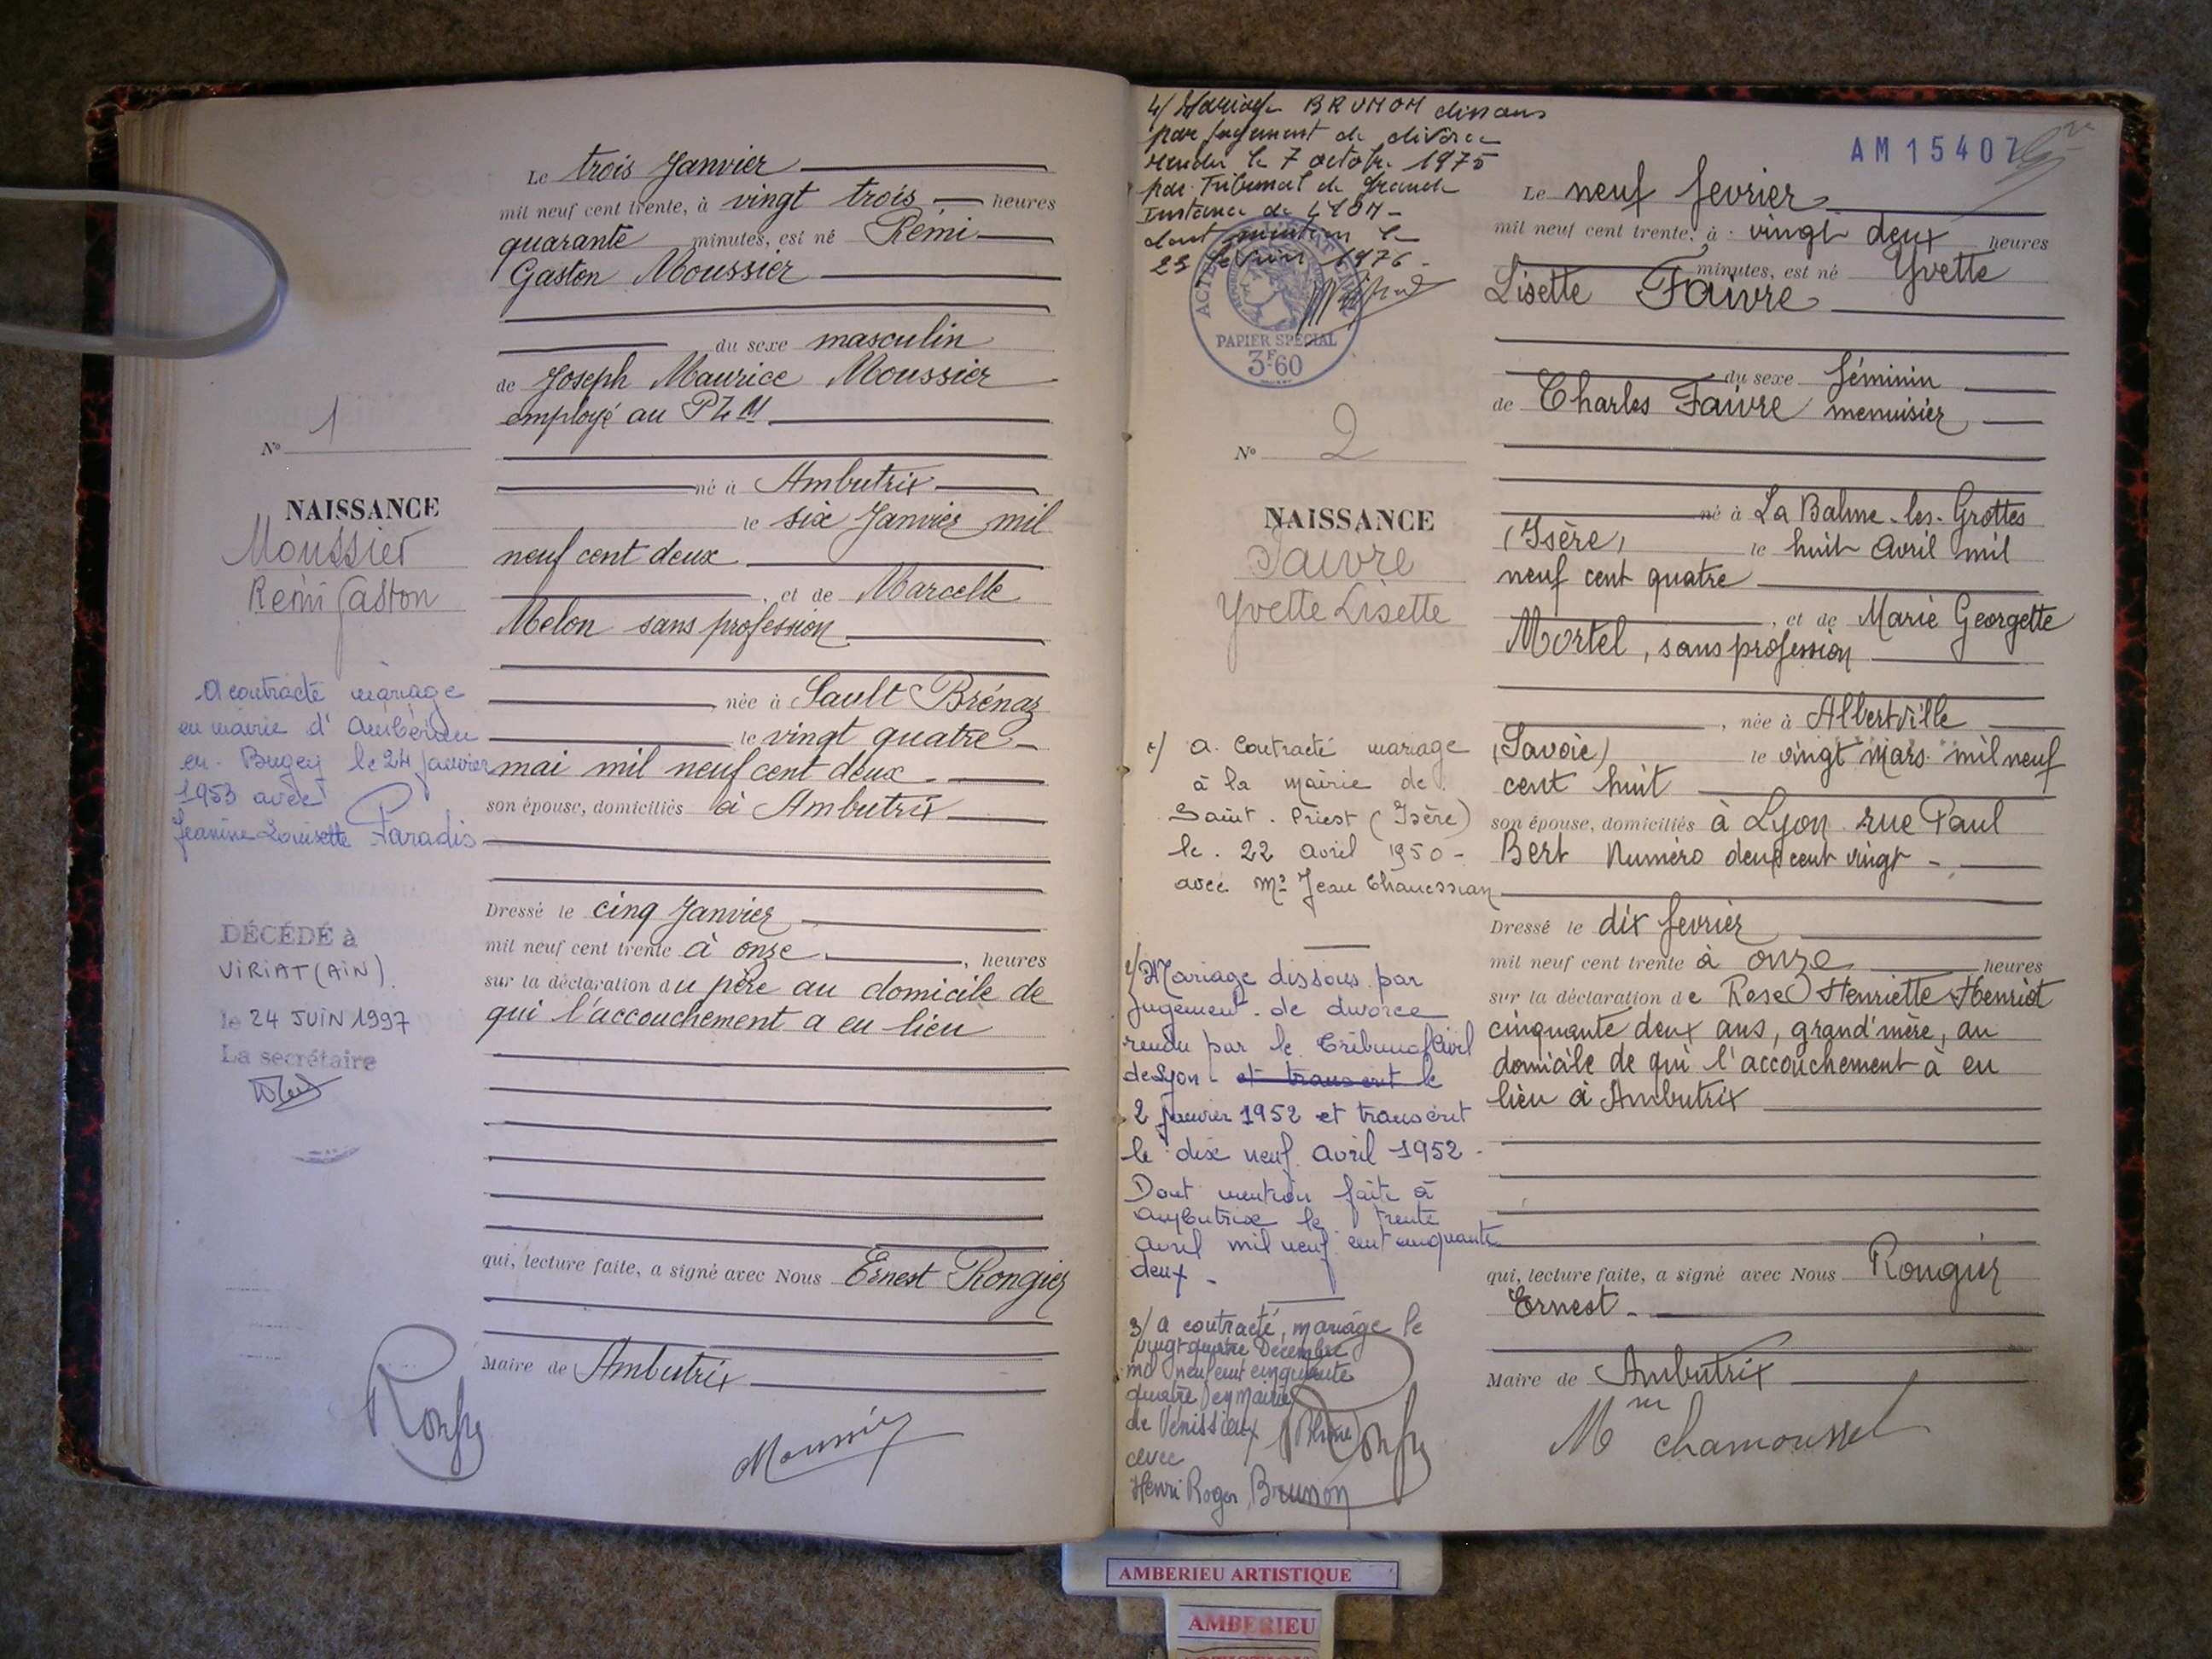 Le trois Janvier
mil neuf cent trente, à vingt trois heures
quarante minutes, est né Rémi
Gaston Moussier
du sexe masculin
de Joseph Maurice Moussier
employé au PLM
né à Ambutrix
le six Janvier mil
neuf cent deux
, et de Marcelle
Melon sans profession
née à Sault Brénaz
le vingt quatre
mai mil neuf cent deux
son épouse, domiciliés à Ambutrix
Dressé le cinq Janvier
mil neuf cent trente à onze , heures
sur la déclaration du père au domicile de
qui l'accouchement a eu lieu
qui, lecture faite, a signé avec Nous Ernest Rongier
Maire de Ambutrix
Moussier
N° 1
NAISSANCE
Moussier
Rémi Gaston
A contracté mariage
en mairie d'Ambérieu
en Bugey le 24 janvier
1953 avec
Jeanine Louisette Paradis
DÉCÉDÉ à
VIRIAT (AIN).
le 24 JUIN 1997
La secrétaire
4/ Mariage BRUNON dissous
par jugement de divorce
rendu le 7 octobre 1975
par Tribunal de Grande
Instance de LYON -
dont mention le
23 février 1976 -
PAPIER SPÉCIAL
3F60
N° 2
NAISSANCE
Faivre
Yvette Lisette
1/ A contracté mariage
à la mairie de
Saint-Priest (Isère)
le 22 avril 1950 -
avec Mr Jean Chanessian
2/ Mariage dissous par
jugement de divorce
rendu par le Tribunal Civil
de Lyon - et transcrit le
2 janvier 1952 et transcrit
le dix neuf avril 1952 -
Dont mention faite à
Ambutrix le trente
avril mil neuf cent cinquante
deux -
3/ A contracté mariage le
vingt quatre Décembre
mil neuf cent cinquante
quatre en Mairie
de Vénissieux (Rhône)
avec
Henri Roger Brunon
AM15407
Le neuf fevrier
mil neuf cent trente, à vingt deux heures
minutes, est né Yvette
Lisette Faivre
du sexe féminin
de Charles Faivre menuisier
né à La Balme-les-Grottes
(Isère) le huit Avril mil
neuf cent quatre
, et de Marie Georgette
Mortel, sans profession
, née à Albertville
(Savoie) le vingt Mars mil neuf
cent huit
son épouse, domiciliés à Lyon rue Paul
Bert Numéro deux cent vingt -
Dressé le dix fevrier
mil neuf cent trente à onze heures
sur la déclaration de Rose Henriette Henriot
cinquante deux ans, grand'mère, au
domicile de qui l'accouchement à eu
lieu à Ambutrix
qui, lecture faite, a signé avec Nous Rougier
Ernest -
Maire de Ambutrix
Mme chamoussel
AMBERIEU ARTISTIQUE
AMBERIEU
ARTISTIQUE